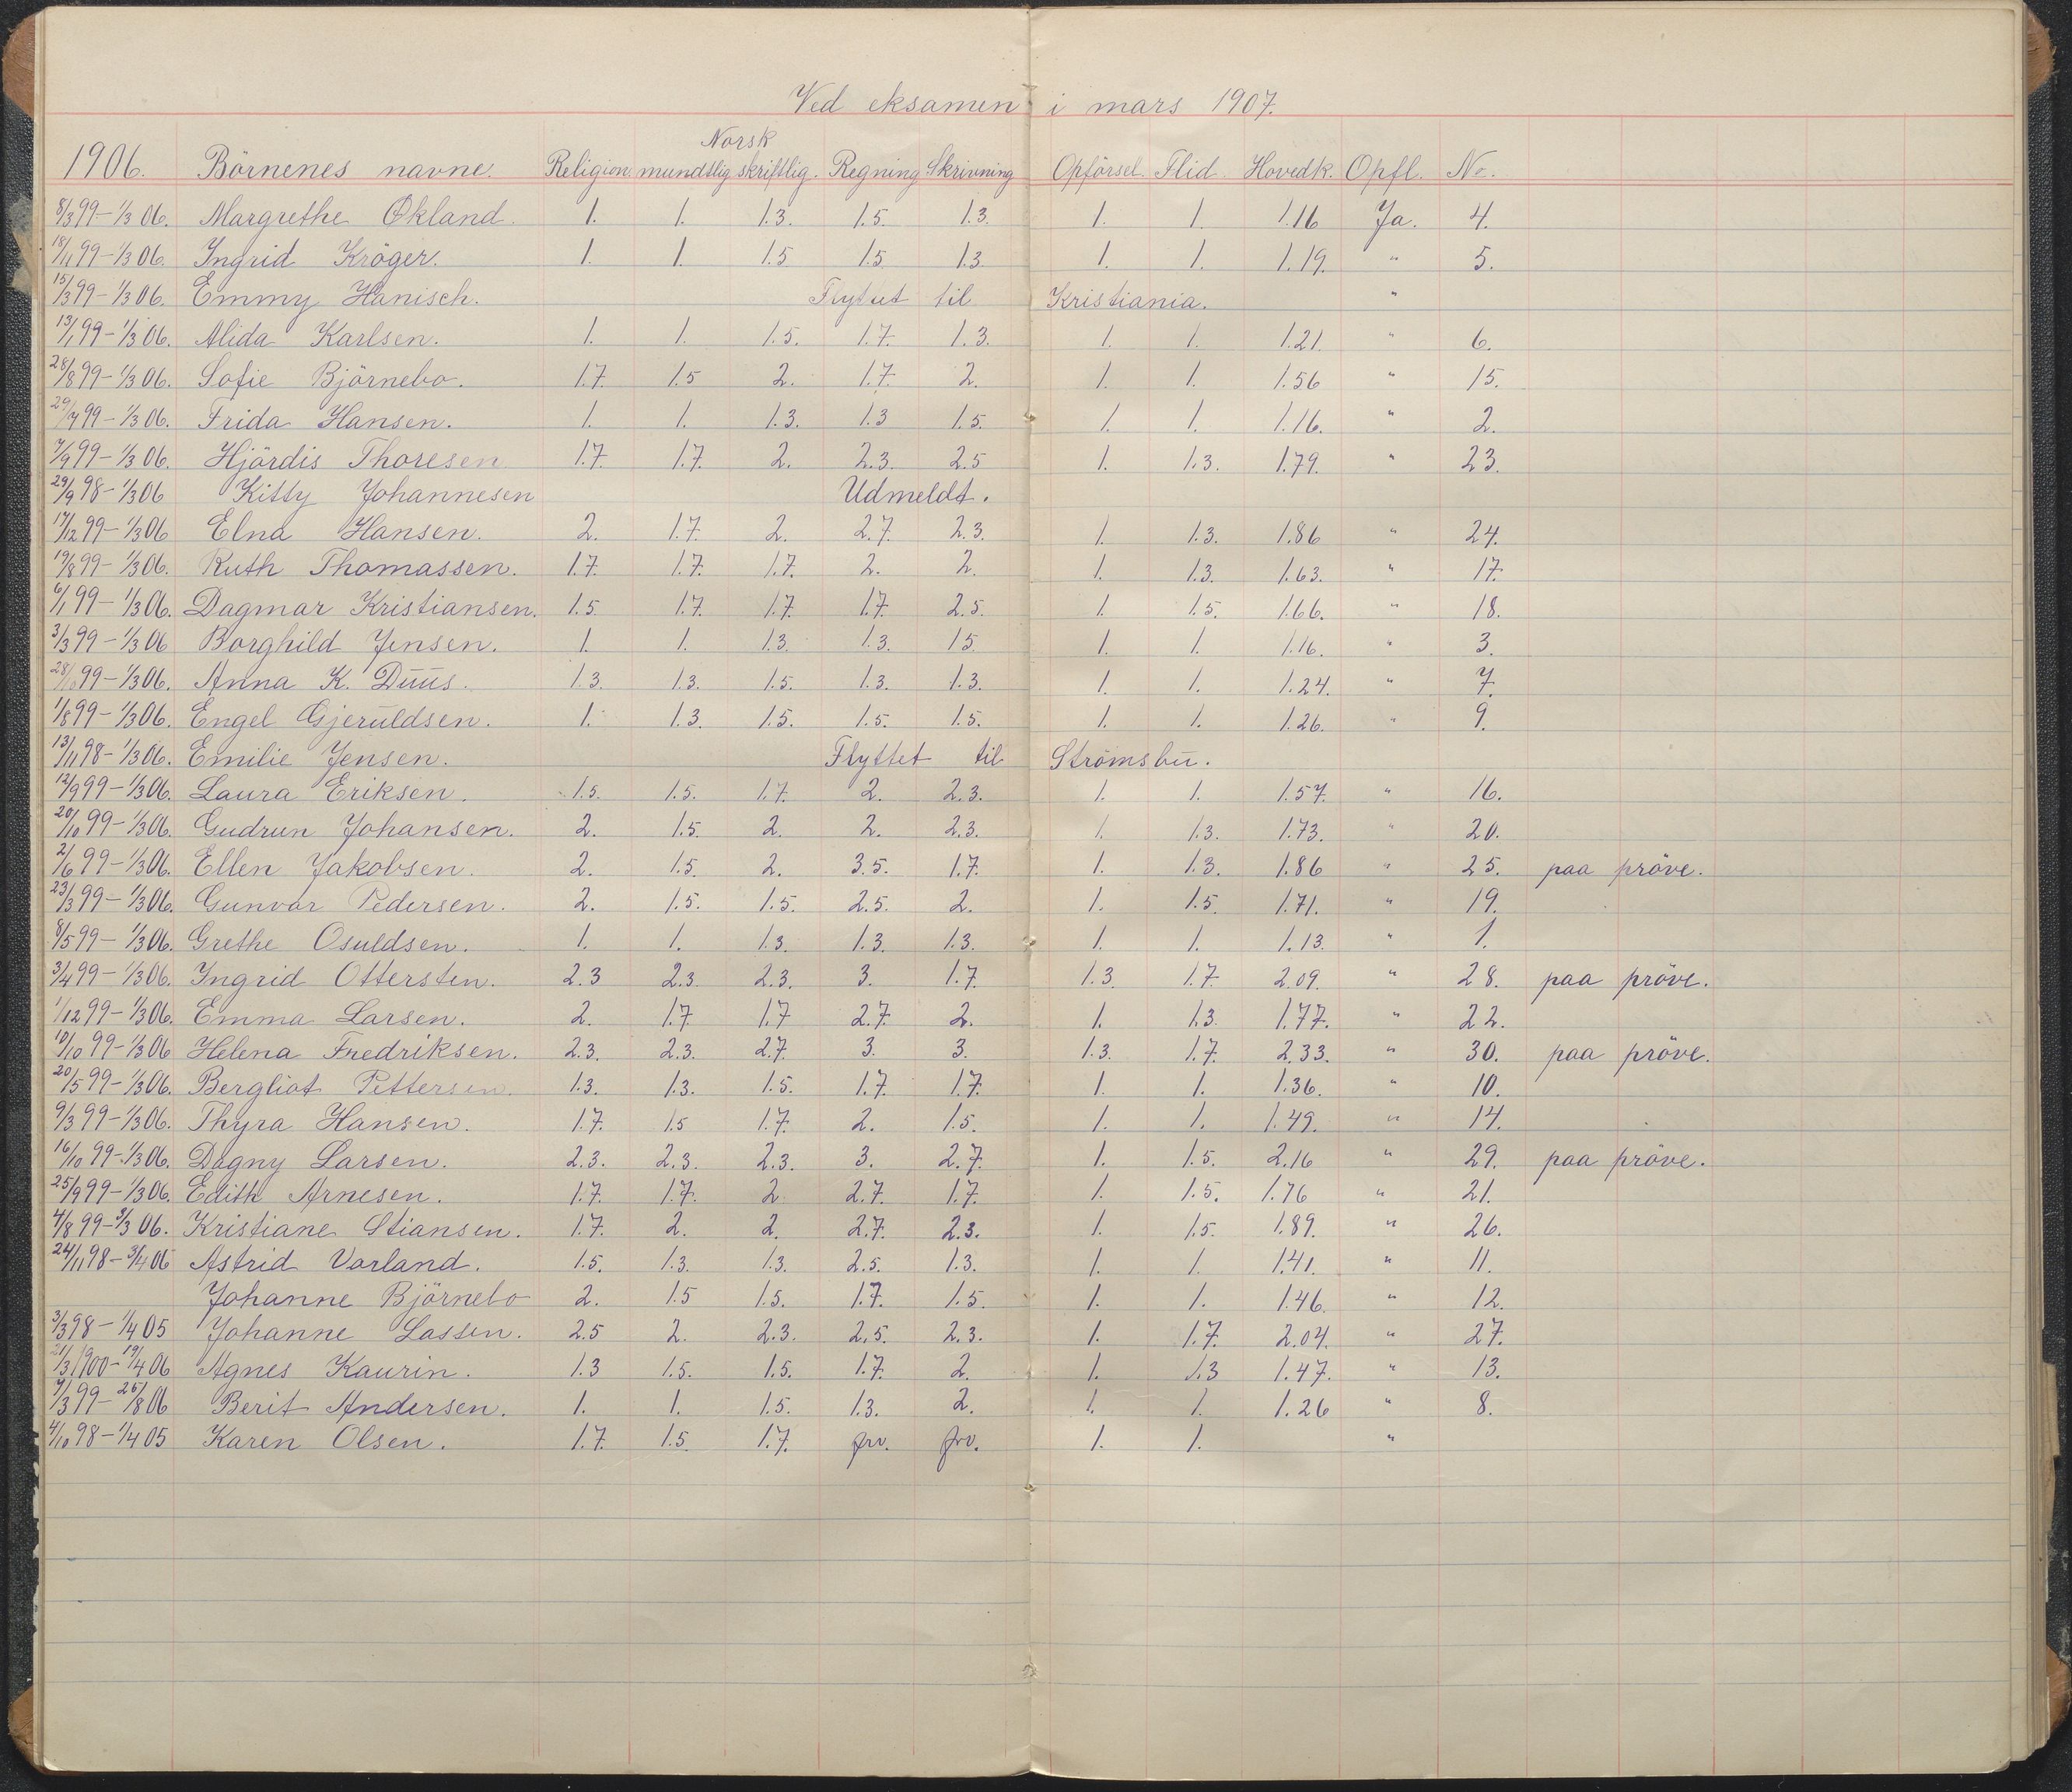 Ved eksamen i mars 1907.
Norsk
1906. Börnenes navne. Religion. mundtlig. skriftlig. Regning Skrivning Opförsel. Flid. Hovedk. Opfl. No.
8/3 99 - 1/3 06. Margrethe Økland. 1. 1. 1.3. 1.5. 1.3. 1. 1. 1.16 Ja. 4.
18/11 99 - 1/3 06. Ingrid Kröger. 1. 1. 1.5 1.5 1.3 1. 1. 1.19. " 5.
15/3 99 - 1/3 06. Emmy Hanisch. Flyttet til Kristiania. "
13/1 99 - 1/3 06. Alida Karlsen. 1. 1. 1.5. 1.7. 1.3. 1. 1. 1.21. " 6.
28/8 99 - 1/3 06. Sofie Björnebo. 1.7. 1.5 2. 1.7. 2. 1. 1. 1.56 " 15.
29/7 99 - 1/3 06. Frida Hansen. 1. 1. 1.3. 1.3 1.5. 1. 1. 1.16. " 2.
7/9 99 - 1/3 06. Hjördis Thoresen 1.7. 1.7. 2. 2.3. 2.5 1. 1.3. 1.79. " 23.
29/9 98 - 1/3 06 Kitty Johannesen Udmeldt.
17/12 99 - 1/3 06 Elna Hansen. 2. 1.7. 2. 2.7. 2.3. 1. 1.3. 1.86 " 24.
19/8 99 - 1/3 06. Ruth Thomassen. 1.7. 1.7. 1.7. 2. 2. 1. 1.3. 1.63. " 17.
6/1 99 - 1/3 06. Dagmar Kristiansen. 1.5. 1.7. 1.7. 1.7. 2.5. 1. 1.5. 1.66. " 18.
3/3 99 - 1/3 06 Borghild Jensen. 1. 1. 1.3. 1.3. 1.5. 1. 1. 1.16. " 3.
28/10 99 - 1/3 06. Anna K. Duus. 1.3. 1.3. 1.5. 1.3. 1.3. 1. 1. 1.24. " 7.
1/8 99 - 1/3 06. Engel Gjeruldsen. 1. 1.3. 1.5. 1.5. 1.5. 1. 1. 1.26. " 9.
13/11 98 - 1/3 06. Emilie Jensen. Flyttet til Strömsbu.
12/9 99 - 1/3 06. Laura Eriksen. 1.5. 1.5. 1.7. 2. 2.3. 1. 1. 1.57. " 16.
20/10 99 - 1/3 06. Gudrun Johansen. 2. 1.5. 2. 2. 2.3. 1. 1.3. 1.73. " 20.
2/6 99 - 1/3 06. Ellen Jakobsen. 2. 1.5. 2. 3.5. 1.7. 1. 1.3. 1.86 " 25. paa pröve.
23/3 99 - 1/3 06. Gunvor Pedersen. 2. 1.5. 1.5. 2.5. 2. 1. 1.5. 1.71. " 19.
8/5 99 - 1/3 06. Grethe Osuldsen. 1. 1. 1.3. 1.3. 1.3. 1. 1. 1.13. " 1.
3/4 99 - 1/3 06. Ingrid Ottersten. 2.3 2.3. 2.3. 3. 1.7. 1.3. 1.7. 2.09. " 28. paa pröve.
1/12 99 - 1/3 06. Emma Larsen. 2. 1.7. 1.7 2.7. 2. 1. 1.3. 1.77. " 22.
10/10 99 - 1/3 06 Helena Fredriksen. 2.3. 2.3. 2.7. 3. 3. 1.3. 1.7. 2.33. " 30. paa pröve.
20/5 99 - 1/3 06. Bergliot Pettersen. 1.3. 1.3. 1.5. 1.7. 1.7. 1. 1. 1.36. " 10.
9/3 99 - 1/3 06. Thyra Hansen. 1.7. 1.5 1.7. 2. 1.5. 1. 1. 1.49. " 14.
16/10 99 - 1/3 06. Dagny Larsen. 2.3. 2.3. 2.3. 3. 2.7. 1. 1.5. 2.16 " 29. paa pröve.
25/9 99 - 1/3 06. Edith Arnesen. 1.7. 1.7. 2 2.7. 1.7. 1. 1.5. 1.76 " 21.
4/8 99 - 3/3 06. Kristiane Stiansen. 1.7. 2. 2. 2.7. 2.3. 1. 1.5. 1.89. " 26.
24/11 98 - 3/4 06 Astrid Vorland. 1.5. 1.3. 1.3. 2.5. 1.3. 1. 1. 1.41. " 11.
Johanne Björnebo 2. 1.5 1.5. 1.7. 1.5. 1. 1. 1.46. " 12.
3/3 98 - 1/4 05 Johanne Lassen. 2.5 2. 2.3. 2.5. 2.3. 1. 1.7. 2.04. " 27.
21/3 1900 - 19/4 06 Agnes Kaurin. 1.3 1.5. 1.5. 1.7. 2. 1. 1.3 1.47. " 13.
7/3 99 - 25/8 06 Berit Andersen. 1. 1. 1.5. 1.3. 2. 1. 1. 1.26 " 8.
4/10 98 - 1/4 05 Karen Olsen. 1.7. 1.5. 1.7. frv. frv. 1. 1. "